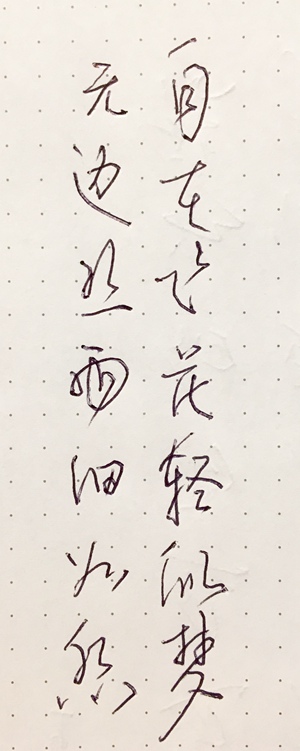 自在飞花轻似梦
无边丝雨细如愁